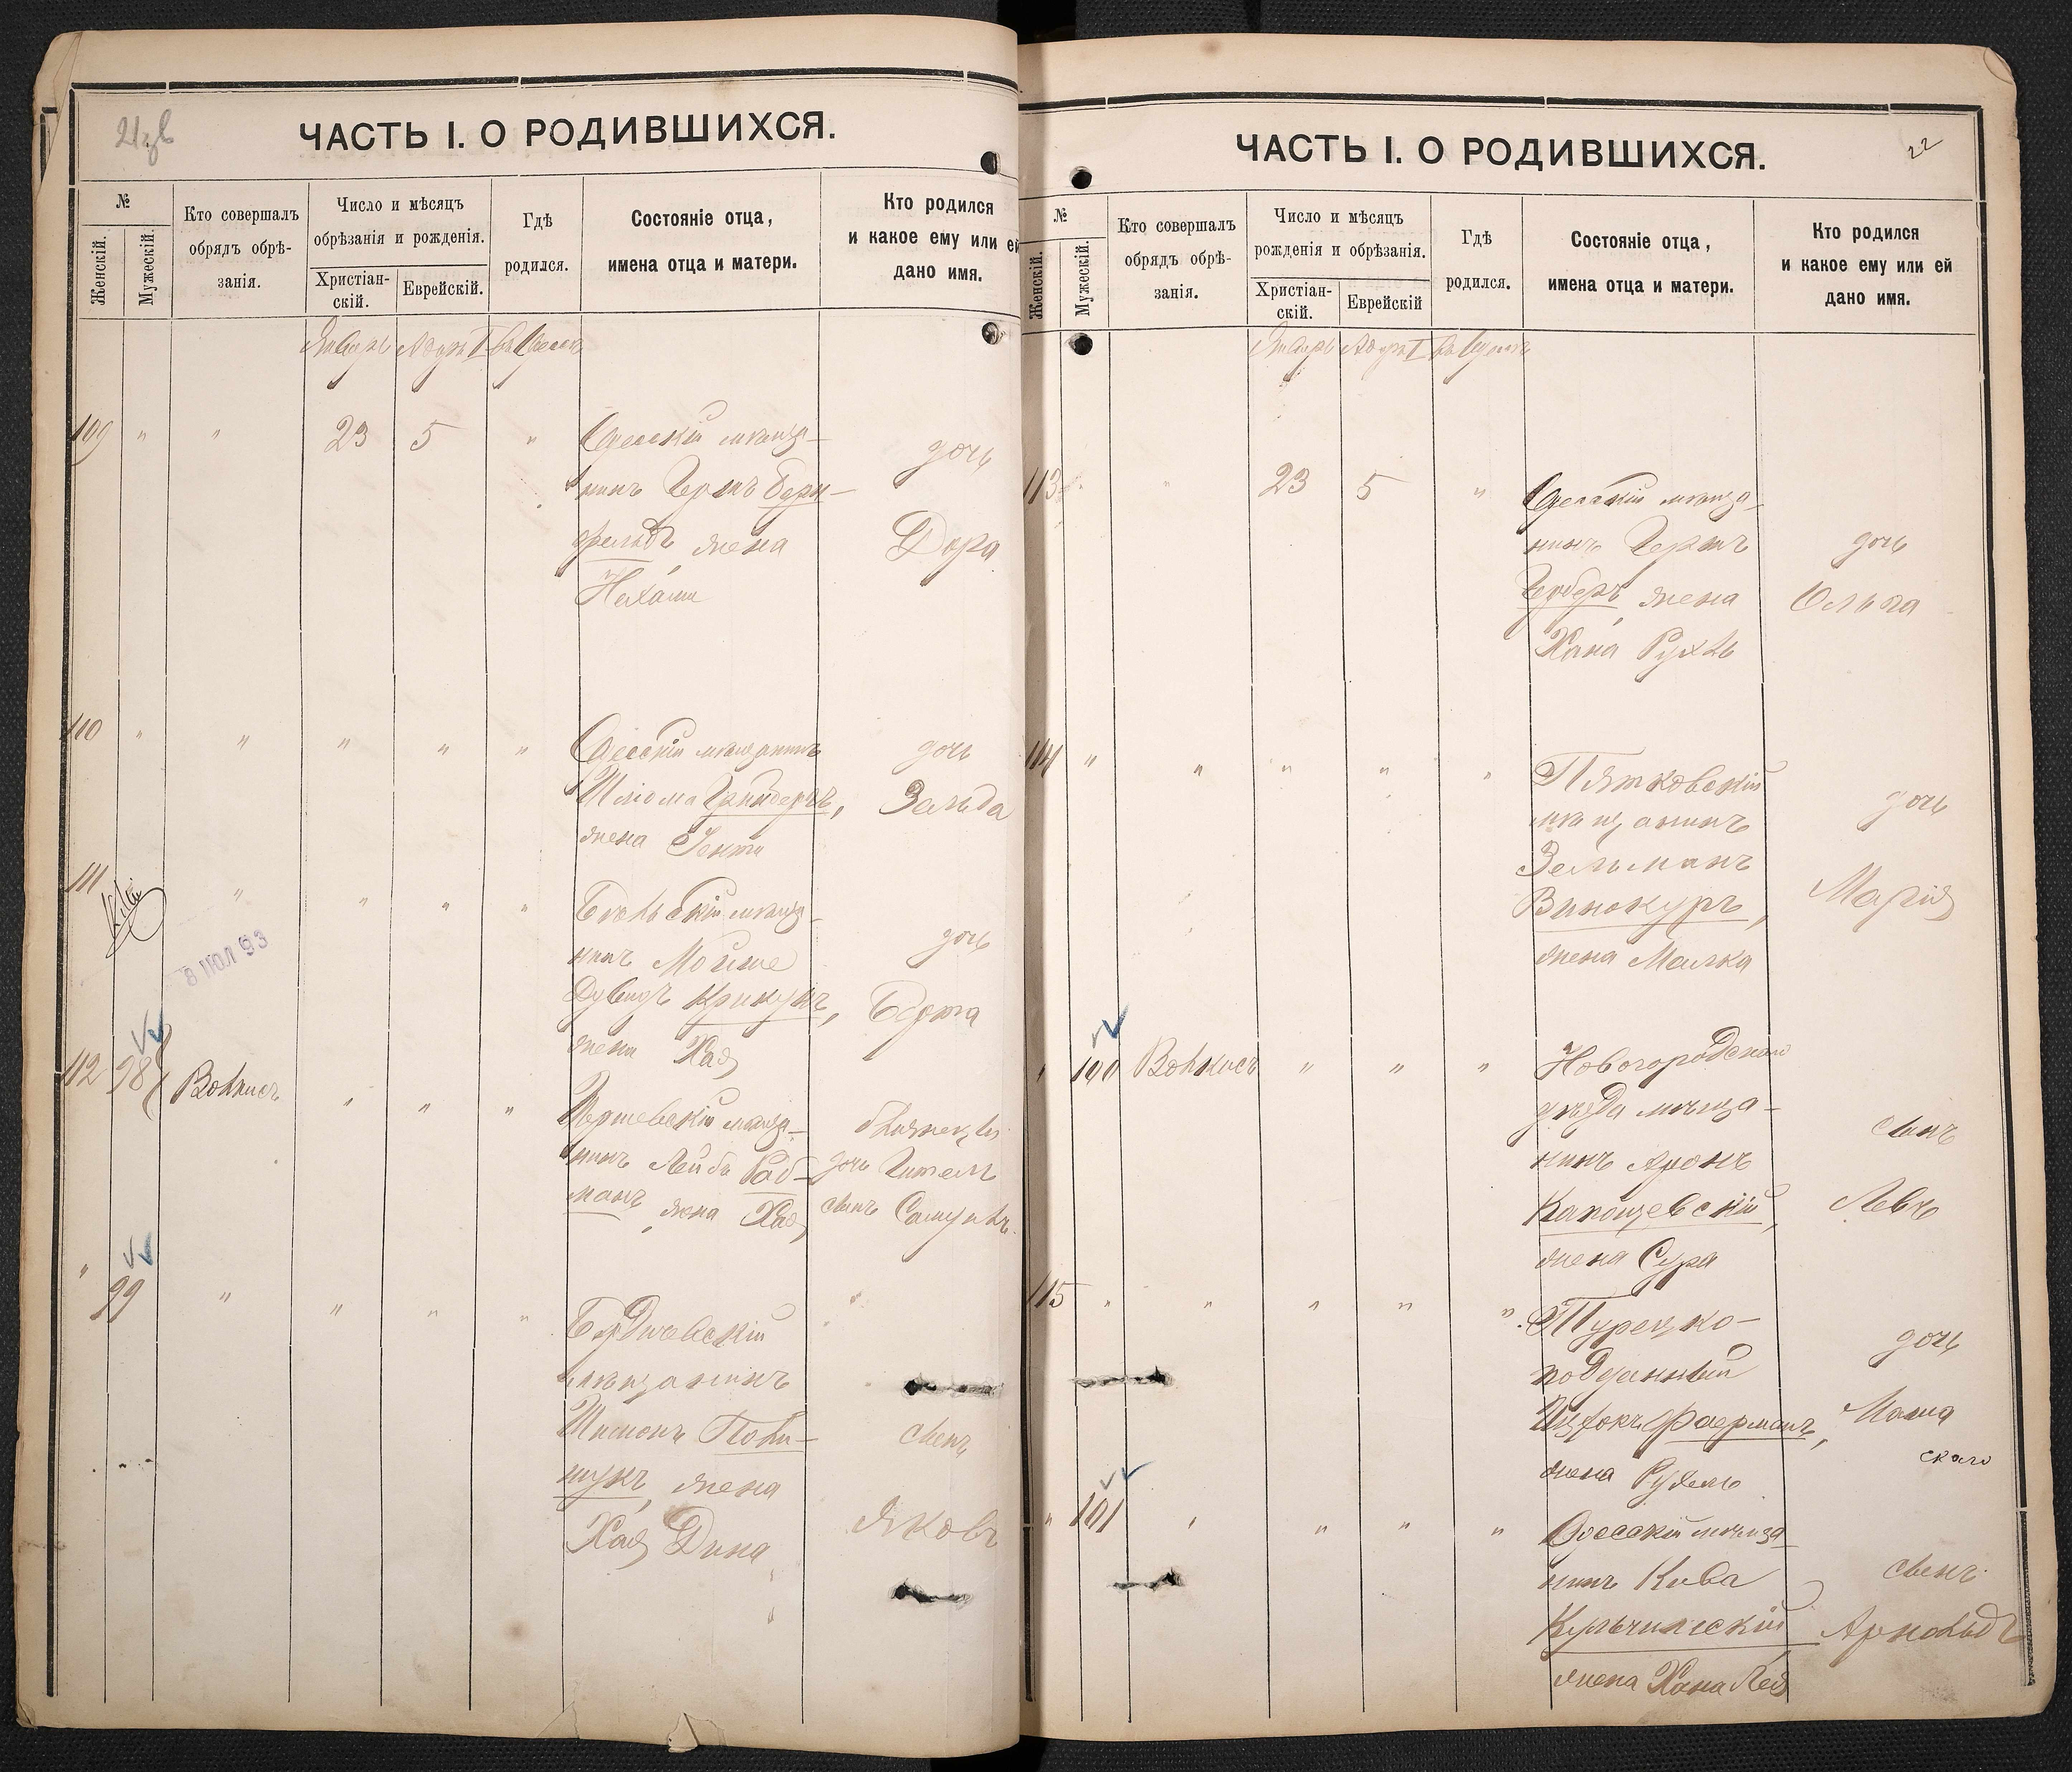 21зв
ЧАСТЬ I. О РОДИВШИХСЯ.
№
Женскій.
Мужескій.
Кто совершалъ
обрядъ обрѣ-
занія.
Число и мѣсяцъ
обрѣзанія и рожденія.
Христіан-
скій.
Еврейскій.
Гдѣ
родился.
Состояніе отца,
имена отца и матери.
Кто родился
и какое ему или ей
дано имя.
Январь Адаръ I въ Одессѣ
109 " " 23 5 " Одесскій мѣща-
нинъ Герш Берн-
фельдъ, жена
Нехама
дочь
Дора
110 " " " " " Одесскій мѣщанинъ
Шлиома Гринбергъ,
жена Гентя
дочь
Зельда
111 " " " "
8 ІЮЛ 93
мѣща-
нинъ Мойше
Дувидъ Крикунъ,
жена Хая
дочь
Берта
112 98 Волькисъ " " "
мѣща-
нинъ Лейба Раб-
манъ, жена Хая
близнецы
дочь Гитель
сынъ Самуилъ
" 99 " " " " Бердичевскій
мѣщанинъ
Шимонъ
жена
Хая Дина
сынъ
Яковъ
22
ЧАСТЬ I. О РОДИВШИХСЯ.
№
Женскій.
Мужескій.
Кто совершалъ
обрядъ обрѣ-
занія.
Число и мѣсяцъ
рожденія и обрѣзанія.
Христіан-
скій.
Еврейскій
Гдѣ
родился.
Состояніе отца,
имена отца и матери.
Кто родился
и какое ему или ей
дано имя.
Январь Адаръ I въ Одессѣ
113 " " 23 5 " Одесскій мѣща-
нинъ Герш
жена
Хана Рухль
дочь
Ольга
114 " " " " " Пятковскій
мѣщанинъ
Зельманъ
Винокуръ,
жена Малка
дочь
Марія
" 100 Волькисъ " " " Новогородскаго
уѣзда мѣща-
нинъ Аронъ
жена Сура
сынъ
Левъ
115 " " " " " Турецко-
подданный
Ицхокъ Фаерманъ,
жена Рухель
дочь
Маша
скаго
" 101 " " " " Одесскій мѣща-
нинъ Кива
Кульчинскій
жена Хана Лея
сынъ
Арнольдъ